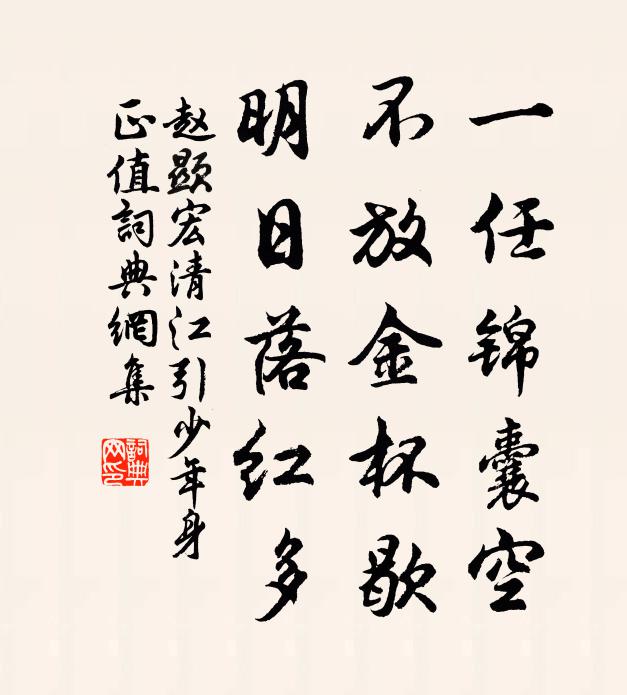 一任锦囊空
不放金杯歇
明日落红多
赵显宏清江引少年身
正值詞典網集
詞典網印